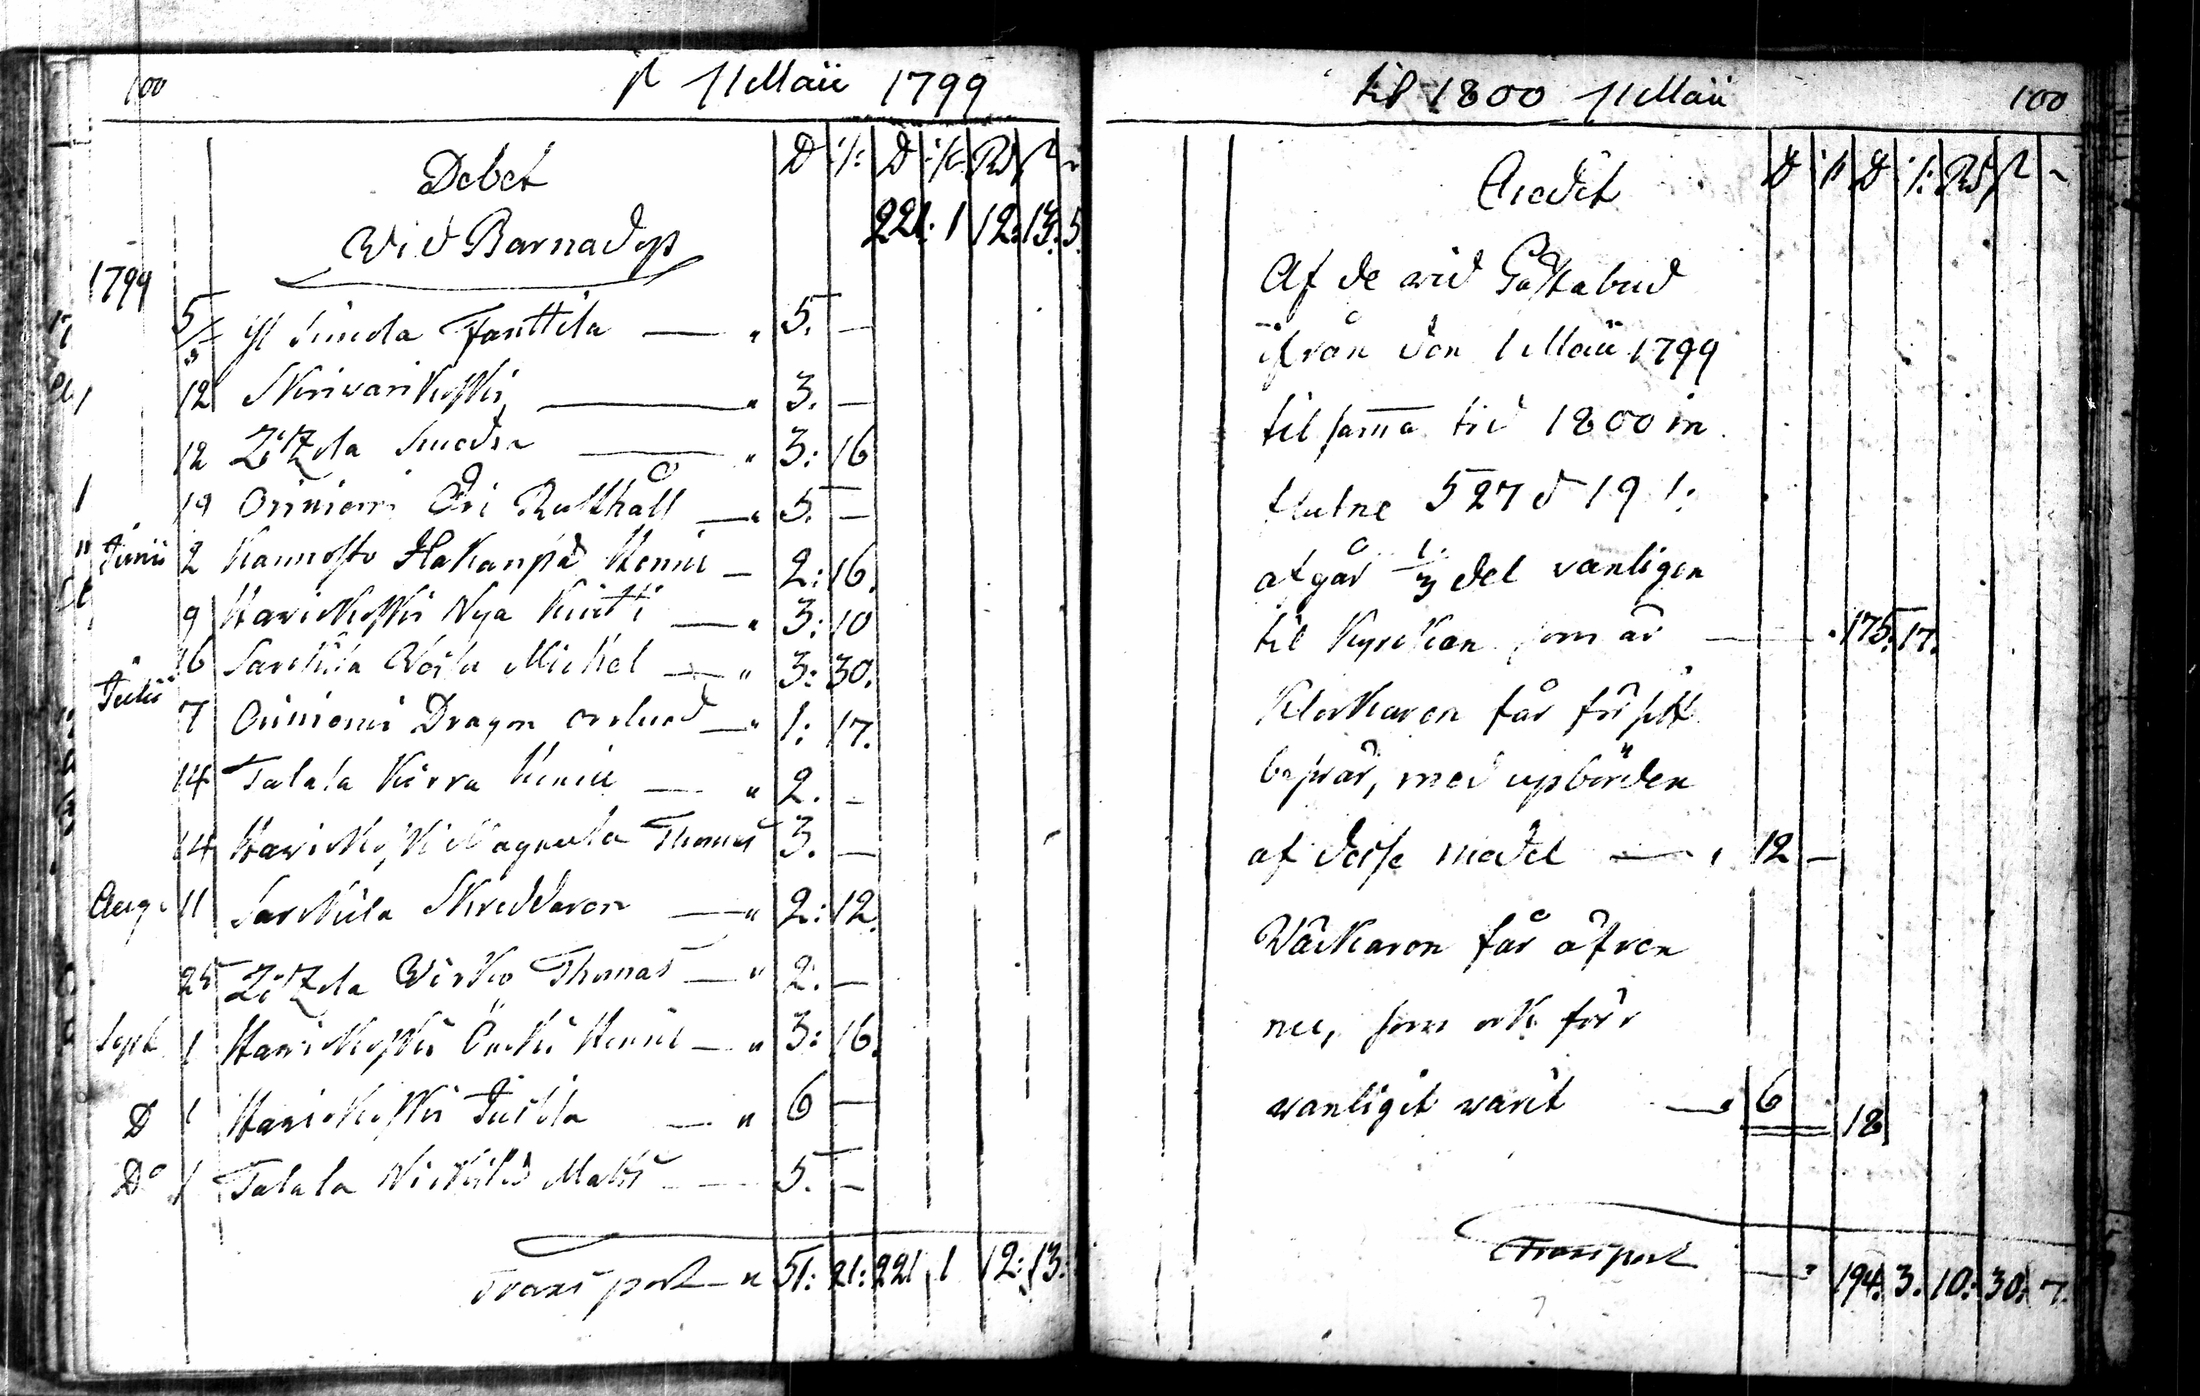 100 fr 1 Maii 1799
Debet D :/: D :/: Rd
Wid Barnadop 221: 1 12: 13: 5.
1799
5/5 Yl Simola Fanttila — " 5. —
12 Skrivarikoski — " 3. —
12 Zitzola Smeden — " 3: 16
19 Oriniemi Ori Rusthåll — " 5. —
Junii 2 Kannosto Hakanpä Henric — 2: 16.
9 Havickoski Nya Kurtti — " 3: 10
16 Sarckila Michel — " 3: 30.
Julii 7 Oriniemi Dragon — " 1: 17.
14 Talala Kirra Henric — " 2. —
14 Havickoski Thomas 3. —
Aug. 11 Sarckila Skreddaren — " 2: 12.
25 Zitzola Wirko Thomas — " 2. —
Sept. 1 Havickoski Henric — " 3: 16.
D 1 Havickoski — " 6 —
Do 1 Talala Matts — 5. —
Transport — " 51: 21: 221 1 12: 13:
til 1800 1 Maii 100
Credit D :/: D :/: Rd
Af de wid Gästabud
ifrån den 1 Maii 1799
til samma tid 1800 in
flutne 527 d 19 :/:
afgår 1/3 del vanligen
til Kyrckan som är — 175. 17.
Klockaren får för sitt
beswär, med upbörden
af desse medel — 12 —
Väckaren får äfven
nu, som ock förr
wanligit warit — 6 18
Transport — 194. 3. 10: 30: 7.